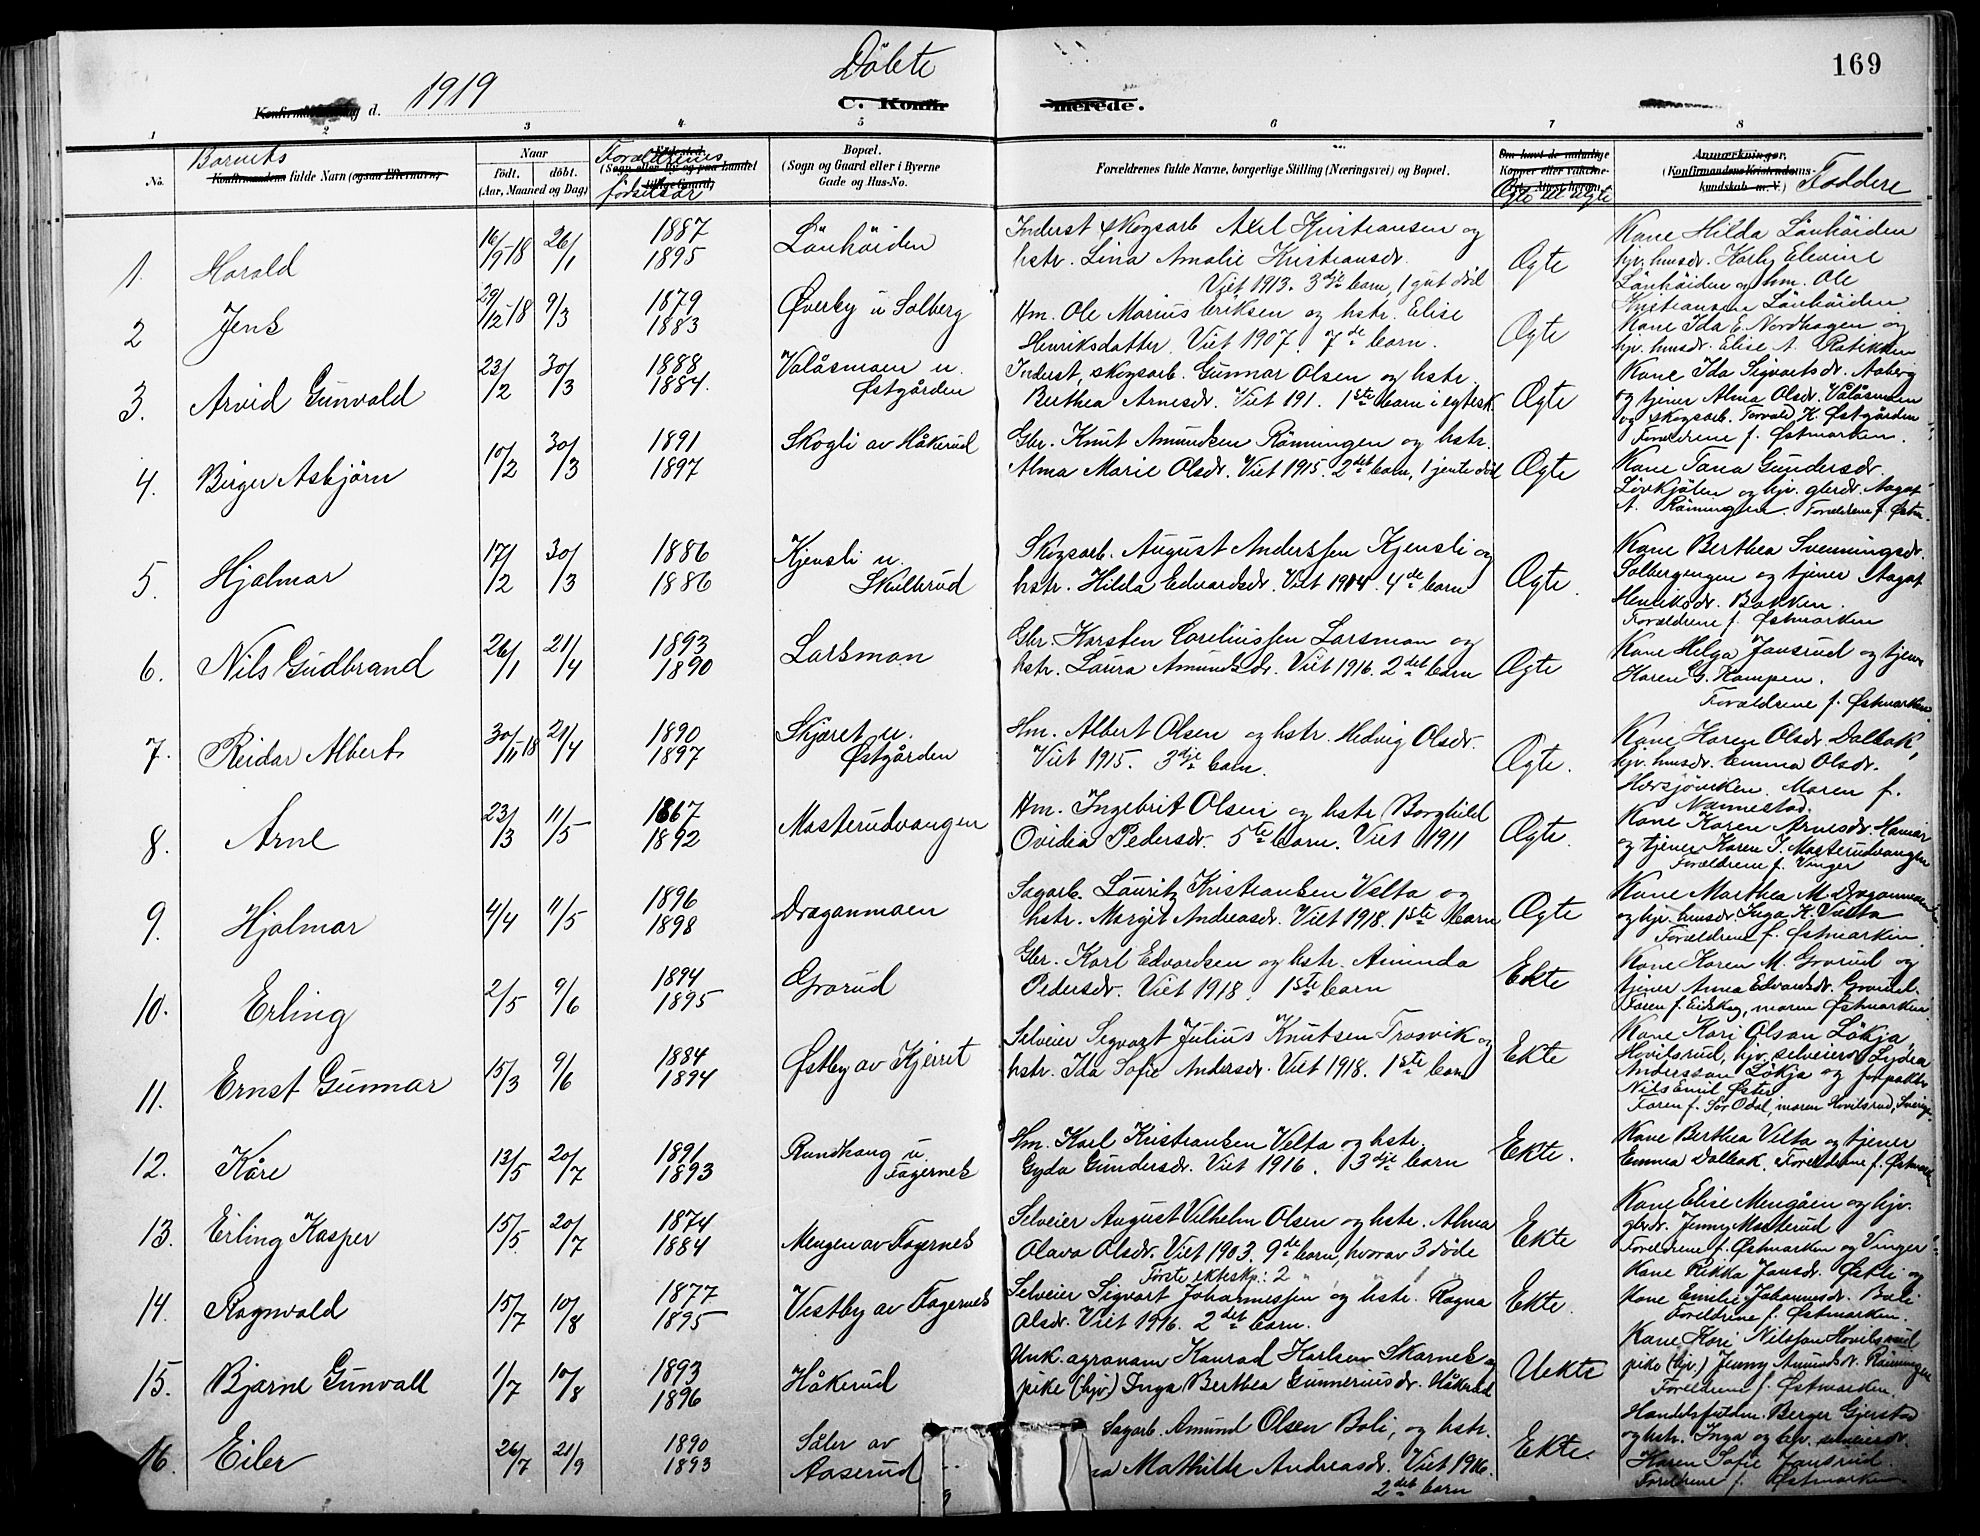 169
Döbte
1919
C. Konfirmerede.
Konfirmationsdag d.
1 2 3 4 5 6 7 8
No.
Barnets
Konfirmandens fulde Navn (ogsaa Efternavn)
Naar
födt. döbt.
(Aar, Maaned og Dag)
Forældrenes
fødselsår
Bopæl.
(Sogn og Gaard eller i Byerne
Gade og Hus-No.
Forældrenes fulde Navne, borgerlige Stilling (Næringsvei) og Bopæl.
Om havt de naturlige
Ægte ell. uægte
Anmærkninger.
(Konfirmandens Kristendomskundskab m. V.) Faddere
1. Harald 16/9-18 26/1 1887 1895 Lönhöiden
Inderst skogsarb. Axel Kristiansen og
hstr. Lina Amalie Kristiansdr.
Viet 1913. 3dje barn, 1 gut död
Ægte
Kone Hilda Lönhöiden
hjv. husdr. Karly Elevine
Lönhöiden og hm. Ole
Kristiansen Lönhöiden.
2 Jens 29/12-18 9/3 1879 1883 Øverby u Solberg
Hm. Ole Marius Eriksen og hstr. Elise
Henriksdatter. Viet 1907. 7de barn.
Ægte
Kone Ida E. Nordhagen og
hjv. husdr. Elise A. Ratikken
3. Arvid Gunvald 23/2 30/3 1888 1884. Valåsmoen u. Østgården
Inderst, skogsarb. Gunnar Olsen og hstr.
Berthea Arnesdr. Viet 191. 1ste barn i egtesk.
Ægte
Kone Ida Sigvartsdr. Aaberg
og tjener Alma Olsdr. Valåsmoen
og skogsarb. Torvald K. Østgården
Forældrene f. Østmarken.
4. Birger Asbjörn 10/2 30/3 1891 1897 Skogli av Håkerud
Gbr. Knut Amundsen Rönningen og hstr.
Alma Marie Olsdr. Viet 1915. 2det barn, 1 jente död
Ægte
Kone Tana Gundersdr.
Lövkjölen og hjv. gbrdr. Aagot
A. Rönningen. Forældrene f. Østm.
5. Hjalmar 17/2 30/3 1886 1886 Kjensli u. Skulbrud
Skogsarb. August Anderssen Kjensli og
hstr. Hilda Edvardsdr. Viet 1904. 4de barn
Ægte.
Kone Berthea Svenningsdr.
Solbergengen og tjener Aagot
Henriksdr. Bakken.
Forældrene f. Østmarken
6. Nils Gudbrand 26/1 21/4 1893 1890 Larsmon
Gbr. Karsten Coreliussen Larsmon og
hstr. Laura Amundsdr. Viet 1916. 2det barn
Ægte
Kone Helga Jansrud og tjener
Karen G. Kampen.
Forældrene f. Østmarken.
7. Reidar Albert 30/11-18 21/4 1890 1897 Skjæret u. Østgården
Hm. Albert Olsen og hstr. Hedvig Olsdr.
Viet 1915. 3dje barn.
Ægte.
Kone Karen Olsdr. Dalbak,
hjv. husdr. Emma Olsdr.
Hersjöviken. Moren f.
Nannestad.
8. Arne 23/3 11/5 1867 1892 Masterudvangen
Hm. Ingebrit Olsen og hstr Borghild
Ovidia Pedersdr. 5te barn. Viet 1911
Ægte.
Kone Karen Arnesdr. Hamar
og tjener Karen I. Masterudvangen
Forældrene f. Vinger
9. Hjalmar 4/4 11/5 1896 1898 Draganmoen
Sagarb. Lauritz Kristiansen Velta og
hstr. Margit Andreasdr. Viet 1918. 1ste barn
Ægte
Kone Marthea M. Draganmoen
og hjv. husdr. Inga K. Velta
Forældrene f. Østmarken.
10. Erling 2/5 9/6 1894 1895 Grorud
Gbr. Karl Edvardsen og hstr. Aminda
Pedersdr. Viet 1918. 1ste barn
Ekte
Kone Karen M. Grorud og
tjener Anna Edvardsdr. Grorud.
Faren f. Eidskog, moren Østmarken
11. Ernst Gunnar 15/3 9/6 1884 1894 Østby av Kjerret
Selveier Segvart Julius Knutsen Trosvik og
hstr. Ida Sofie Andersdr. Viet 1918. 1ste barn
Ekte
Kone Kari Olson Lökja,
Hovilsrud, hjv. selveierdr Lydia
Andersson Lökja og forpakter
Nils Emil Øster
Faren f. Sör Odal, moren Hovilsrud, Sverige.
12. Kåre 13/5 20/7 1891 1893 Rundhaug u. Fagernes
Hm. Karl Kristiansen Velta og hstr.
Gyda Gundersdr. Viet 1916. 3dje barn
Ekte.
Kone Berthea Velta og tjener
Emma Dalbak. Foreldrene f. Østmark
13. Erling Kasper 15/5 20/7 1874 1884 Mengen av Fagernes
Selveier August Vilhelm Olsen og hstr. Alma
Olava Olsdr. Viet 1903. 9de barn, hvorav 3 döde
Ekte
Kone Elise Mengåen og hjv.
gbrdr. Jenny Masterud
Foreldrene f. Østmarken og Vinger
14. Ragnvald 15/7 10/8 1877 1895 Vestby av Fagernes
Förste ekteskp: 2
Selveier Sigvart Johannessen og hstr. Ragna
Olsdr. Viet 1916. 2det barn.
Ekte.
Kone Rikka Jansdr. Østli og
Kone Emilie Johannesdr. Boli
Foreldrene f. Østmarken.
15. Bjarne Gunvall 1/7 10/8 1893 1896 Håkerud
Unk. agronom Konrad Karlsen Skarnes og
pike (hjv) Inga Berthea Gunneriusdr. Håkerud
Uekte
Kone Kari Nilsson Hovilsrud
pike (hjv) Jenny Amundsdr. Rönningen
Foreldrene f. Østmarken.
16. Eiler 26/7 21/9 1890 1893 Såler av Aaserud
Sagarb. Amund Olsen Boli, og hstr.
Mathilde Andreasdr. Viet 1916.
2det barn
Ekte.
Handelsfuldm. Berger Gjerstad
og hstr. Inga og hjv. selveierdr.
Karen Sofie Jansrud.
Foreldrene f. Østmarken